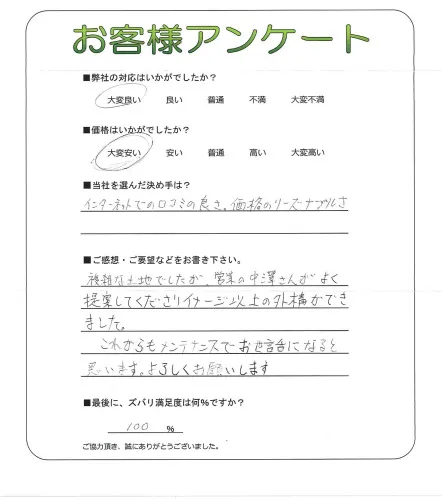 お客様アンケート
■弊社の対応はいかがでしたか?
大変良い 良い 普通 不満 大変不満
■価格はいかがでしたか?
大変安い 安い 普通 高い 大変高い
■当社を選んだ決め手は?
インターネットでの口コミの良さ。価格のリーズナブルさ
■ご感想・ご要望などをお書き下さい。
複雑な土地でしたが、営業の中澤さんがよく
提案してくださりイメージ以上の外構ができ
ました。
これからもメンテナンスでお世話になると
思います。よろしくお願いします
■最後に、ズバリ満足度は何%ですか?
100 %
ご協力頂き、誠にありがとうございました。